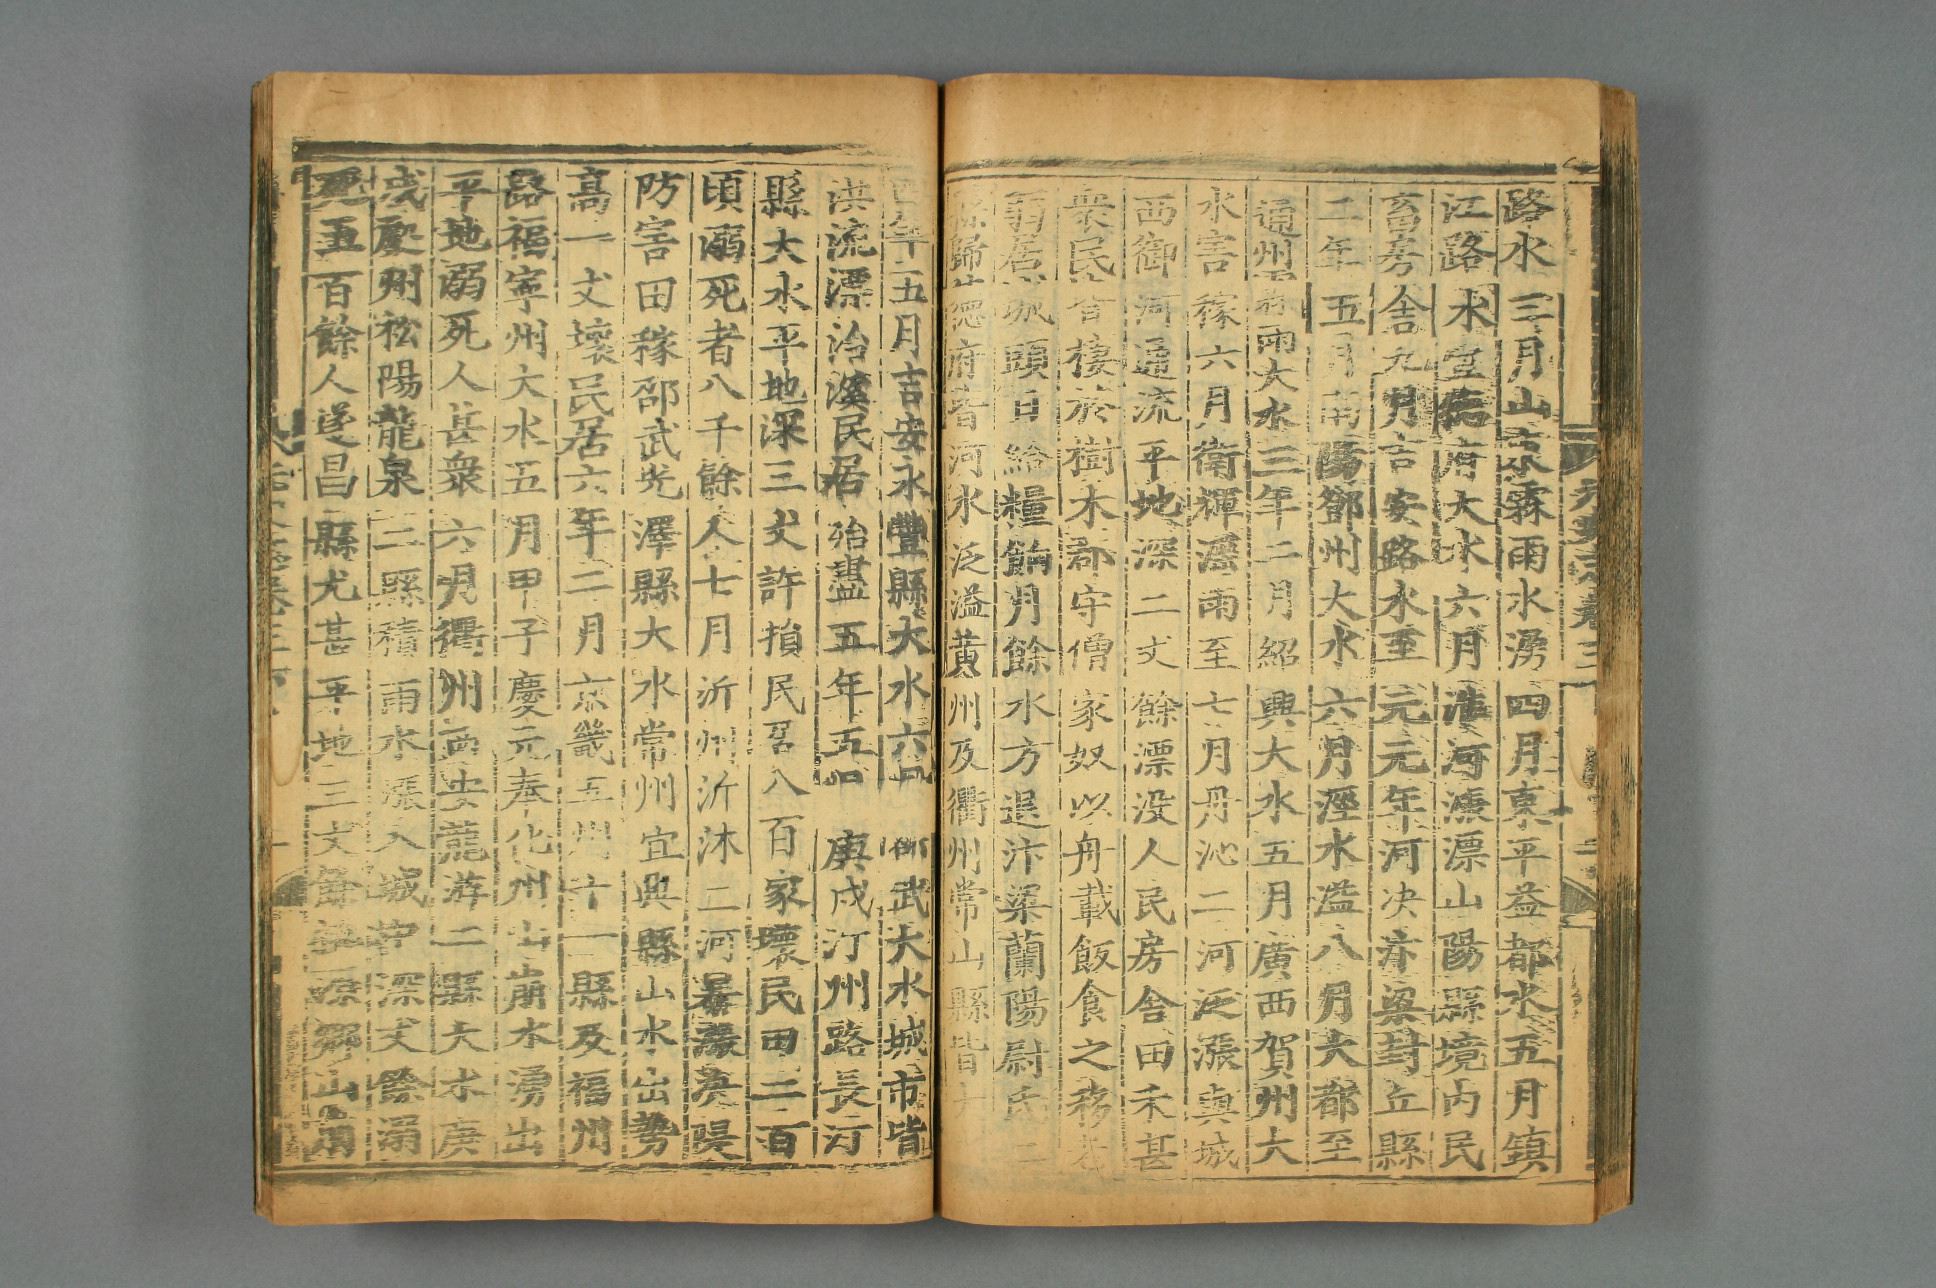 路水三月山東霖雨水湧四月東平益都水五月鎮
江路水宣 府大水六月渾河溢漂山陽縣境内民
畜房舍九月吉安路水至元元年河决汴梁封丘縣
二年五月南陽鄧州大水六月涇水溢八月大都至
通州霖雨大水三年二月紹興大水五月廣西賀州大
水害稼六月衛輝淫雨至七月丹沁二河泛漲與城
西御河通流平地深二丈餘漂没人民房舍田禾甚
衆民皆棲於樹木郡守僧家奴以舟載飯食之移老
弱居城頭日給糧餉月餘水方退汴梁蘭陽尉氏二
縣歸德府皆河水泛溢黄州及衢州常山縣皆大
 年五月吉安永豐縣大水六月邵武大水城市皆
洪流漂泊溪民居殆盡五年五月庚戌汀州路長汀
縣大水平地深三丈許損民居八百家壞民田二百
頃溺死者八千餘人七月沂州沂沭二河暴漲决隄
防害田稼邵武光澤縣大水常州宜興縣山水出勢
高一丈壞民居六年二月京畿五州十一縣及福州
路福寧州大水五月甲子慶元奉化州山崩水湧出
平地溺死人甚衆六月衢州西安龍游二縣大水庚
戌處州松陽龍泉二縣積雨水漲入城中深丈餘溺
死五百餘人遂昌縣尤甚平地三丈餘 山崩